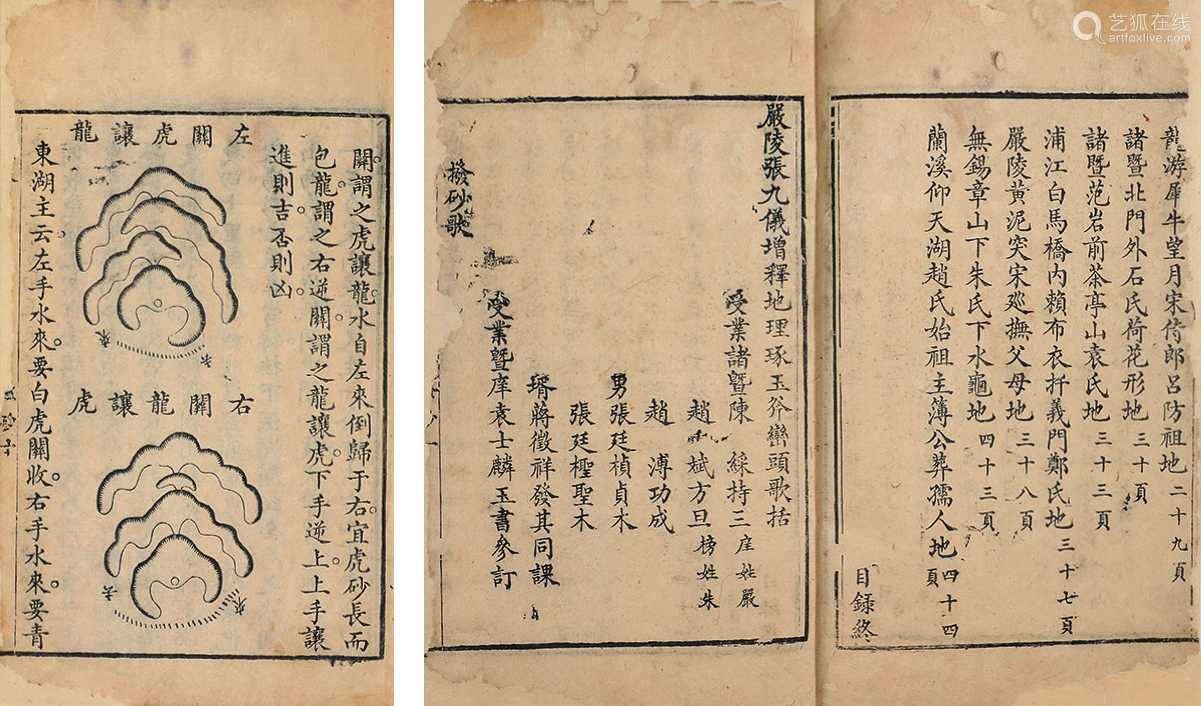 龍游犀牛望月宋侍郎呂防祖地二十九頁
諸暨北門外石氏荷花形地三十頁
諸暨范岩前茶亭山袁氏地三十三頁
浦江白馬橋內賴布衣扦義門鄭氏地三十七頁
嚴陵黃泥突宋廵撫父母地三十八頁
無錫章山下朱氏下水龜地四十三頁
蘭溪仰天湖趙氏始祖主薄公葬孺人地四十四頁
目録終
嚴陵張九儀增釋地理琢玉斧巒頭歌括
受業諸暨陳 綵持三庠姓嚴
趙 斌方旦榜姓朱
趙 溥功成
男張廷楨貞木
張廷樫聖木
壻蔣徵祥發其同課
受業暨庠袁士麟玉書參訂
撥砂歌
關謂之虎讓龍水自左來倒歸于右宜虎砂長而
包龍謂之右逆關謂之龍讓虎下手逆上上手讓
進則吉否則凶
左關虎讓龍
來
去
右關龍讓虎
來
去
東湖主云左手水來要白虎關收右手水來要青
艺狐在线
artfoxlive.com